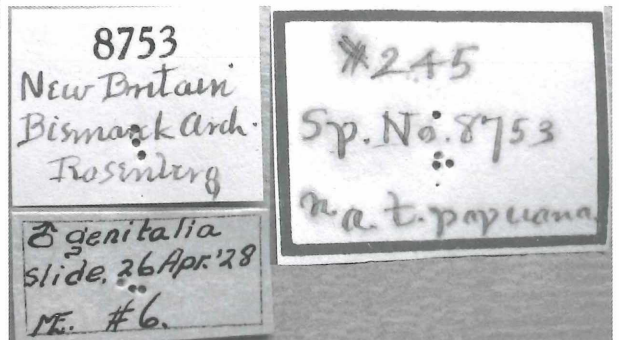 8753
New Britain
Bismarck Arch.
Rosenberg
♂ genitalia
?
slide, 26 Apr. '28
ME. #6.
#245
Sp. No. 8753
n. a. t. papuana.